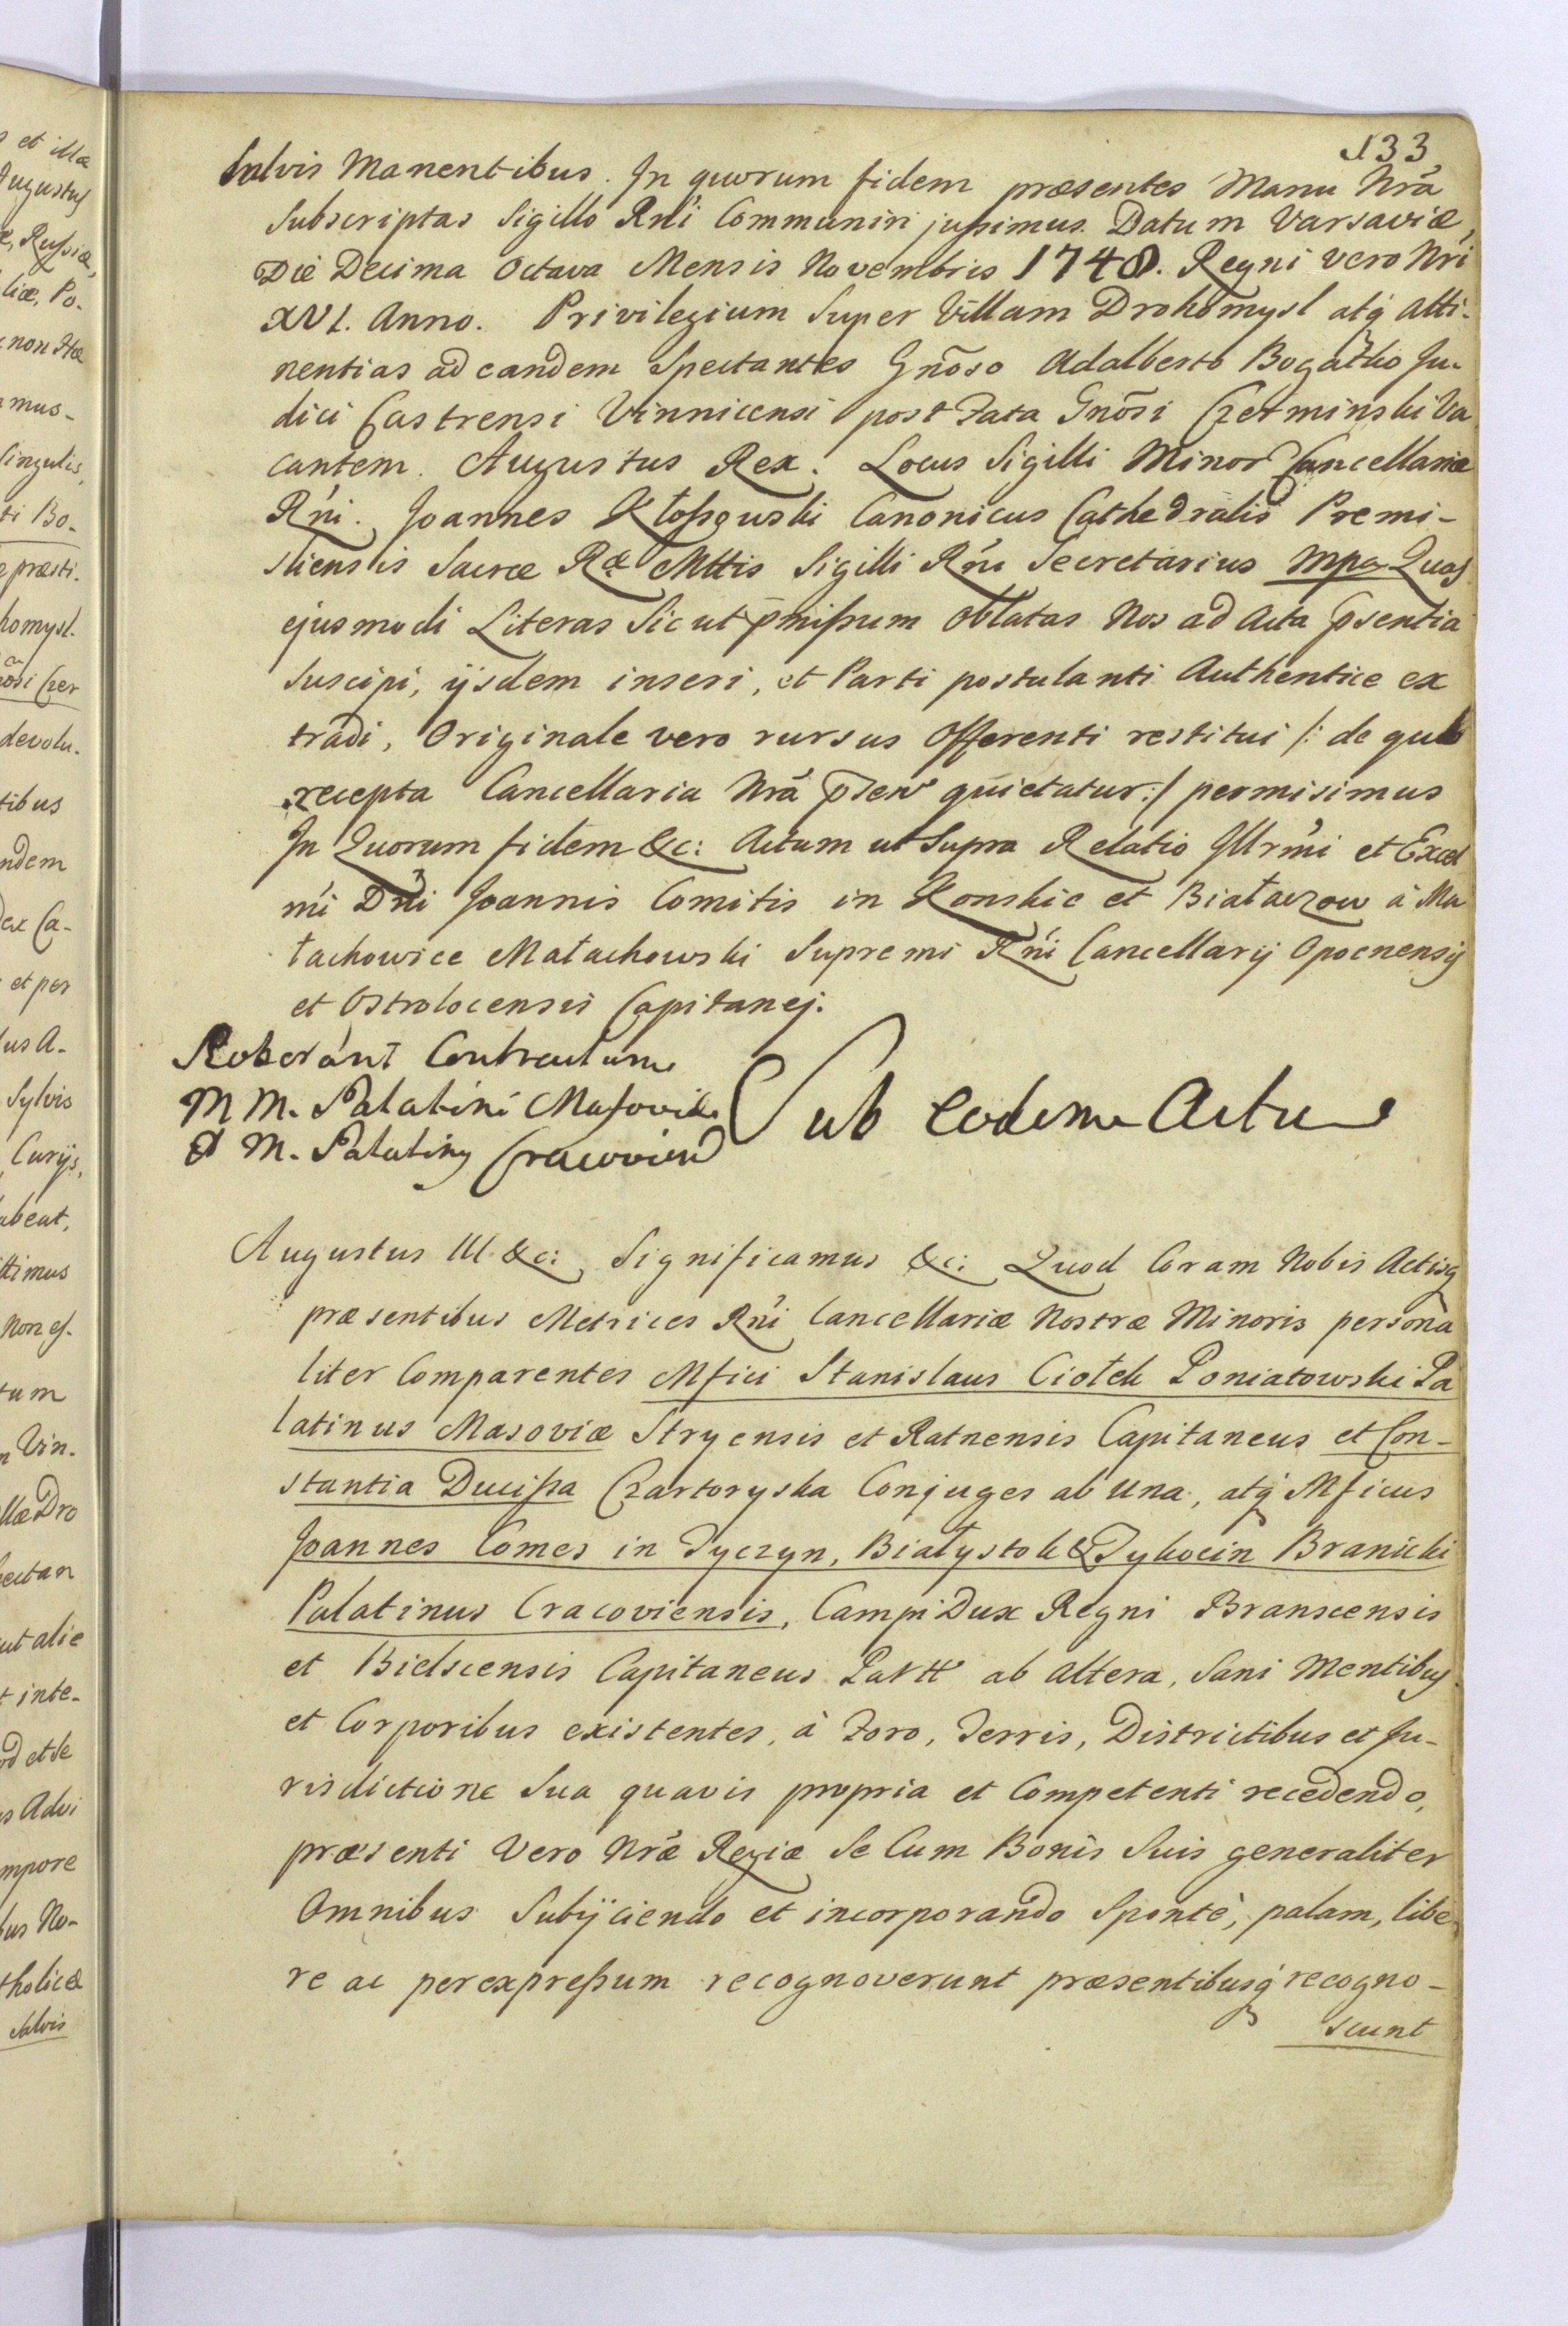 133
Salvis Manentibus. In quorum fidem præsentes Manu Nrã
Subscriptas Sigillo Rni Communiri jussimus. Datum Varsaviæ,
Die Decima Octava Mensis Novembris 1748. Regni vero Nri
XVI. Anno. Privilegium Super Villam Drohomysl atq́ atti-
nentias ad eandem Spectantes Gnõso Adalberto Bogatko Ju-
dici Castrensi Vinnicensi post Fata Gnõsi Czerminski Va
cantem. Augustus Rex. Locus Sigilli Minor Cancellariæ
Rńi. Joannes Kłossowski Canonicus Cathedralis Premi-
sliensis Sacræ Ræ Mttis Sigilli Rńi Secretarius Mpa Quas
ejusmodi Literas Sic ut p̄missum Oblatas Nos ad Acta p̄sentia
Suscipi, ijsdem inseri, et Parti postulanti Authentice ex
tradi, Originale vero rursus Offerenti restitui /: de quo
recepto Cancellaria Nrã p̄sen quietatur :/ permisimus
In Quorum fidem &c: Actum ut Supra Relatio Illrmi et Excel
mi Dni Joannis Comitis in Konskie et Białaczow à Ma
łachowice Małachowski Supremi Rńi Cancellarij Opocnensis
et Ostrolocensis Capitanej.
Roborant Contractum
M M. Palatini Masoviæ
& M. Palatinus Cracovien
Sub eodem Actu
Augustus III &c: Significamus &c: Quod Coram Nobis Actisq
præsentibus Metrices Rńi Cancellariæ Nostræ Minoris persona
liter Comparentes Mfici Stanislaus Ciołek Poniatowski Pa
latinus Masoviæ Stryensis et Ratnensis Capitaneus et Con-
stantia Ducissa Czartoryska Conjuges ab una, atq́ Mficus
Joannes Comes in Tyczyn, Białystok & Tykocin Branicki
Palatinus Cracoviensis, Campi Dux Regni Branscensis
et Bielscensis Capitaneus Partt ab altera, Sani Mentibus
et Corporibus existentes, à Foro, Terris, Districtibus et Ju-
risdictione Sua quavis propria et Competenti recedendo,
præsenti Vero Nræ Regiæ Se Cum Bonis Suis generaliter
Omnibus Subijciendo et incorporando Spontè, palam, libe
re ac per expressum recognoverunt præsentibusq́ recogno-
scunt